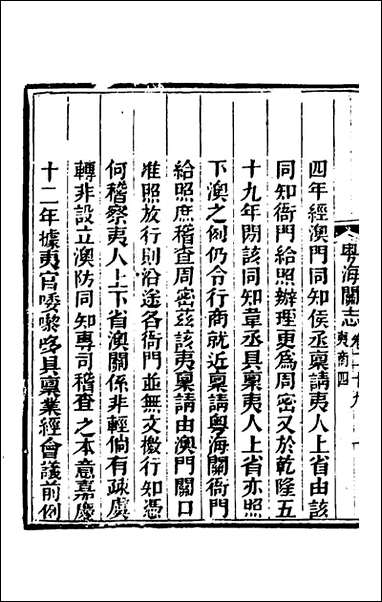 粵海關志 卷二十九 夷商四
四年經澳門同知侯丞稟請夷人上省由該
同知衙門給照辦理更爲周密又於乾隆五
十九年旣該同知韋丞具稟夷人上省亦照
下澳之例仍令行商就近稟請粵海關衙門
給照庶稽查周密茲該夷稟請由澳門關口
准照放行則沿途各衙門並無文檄行知憑
何稽察夷人上下省澳關係非輕倘有疎虞
轉非設立澳防同知專司稽查之本意嘉慶
十二年據夷官喽嚟哆具稟業經會議前例